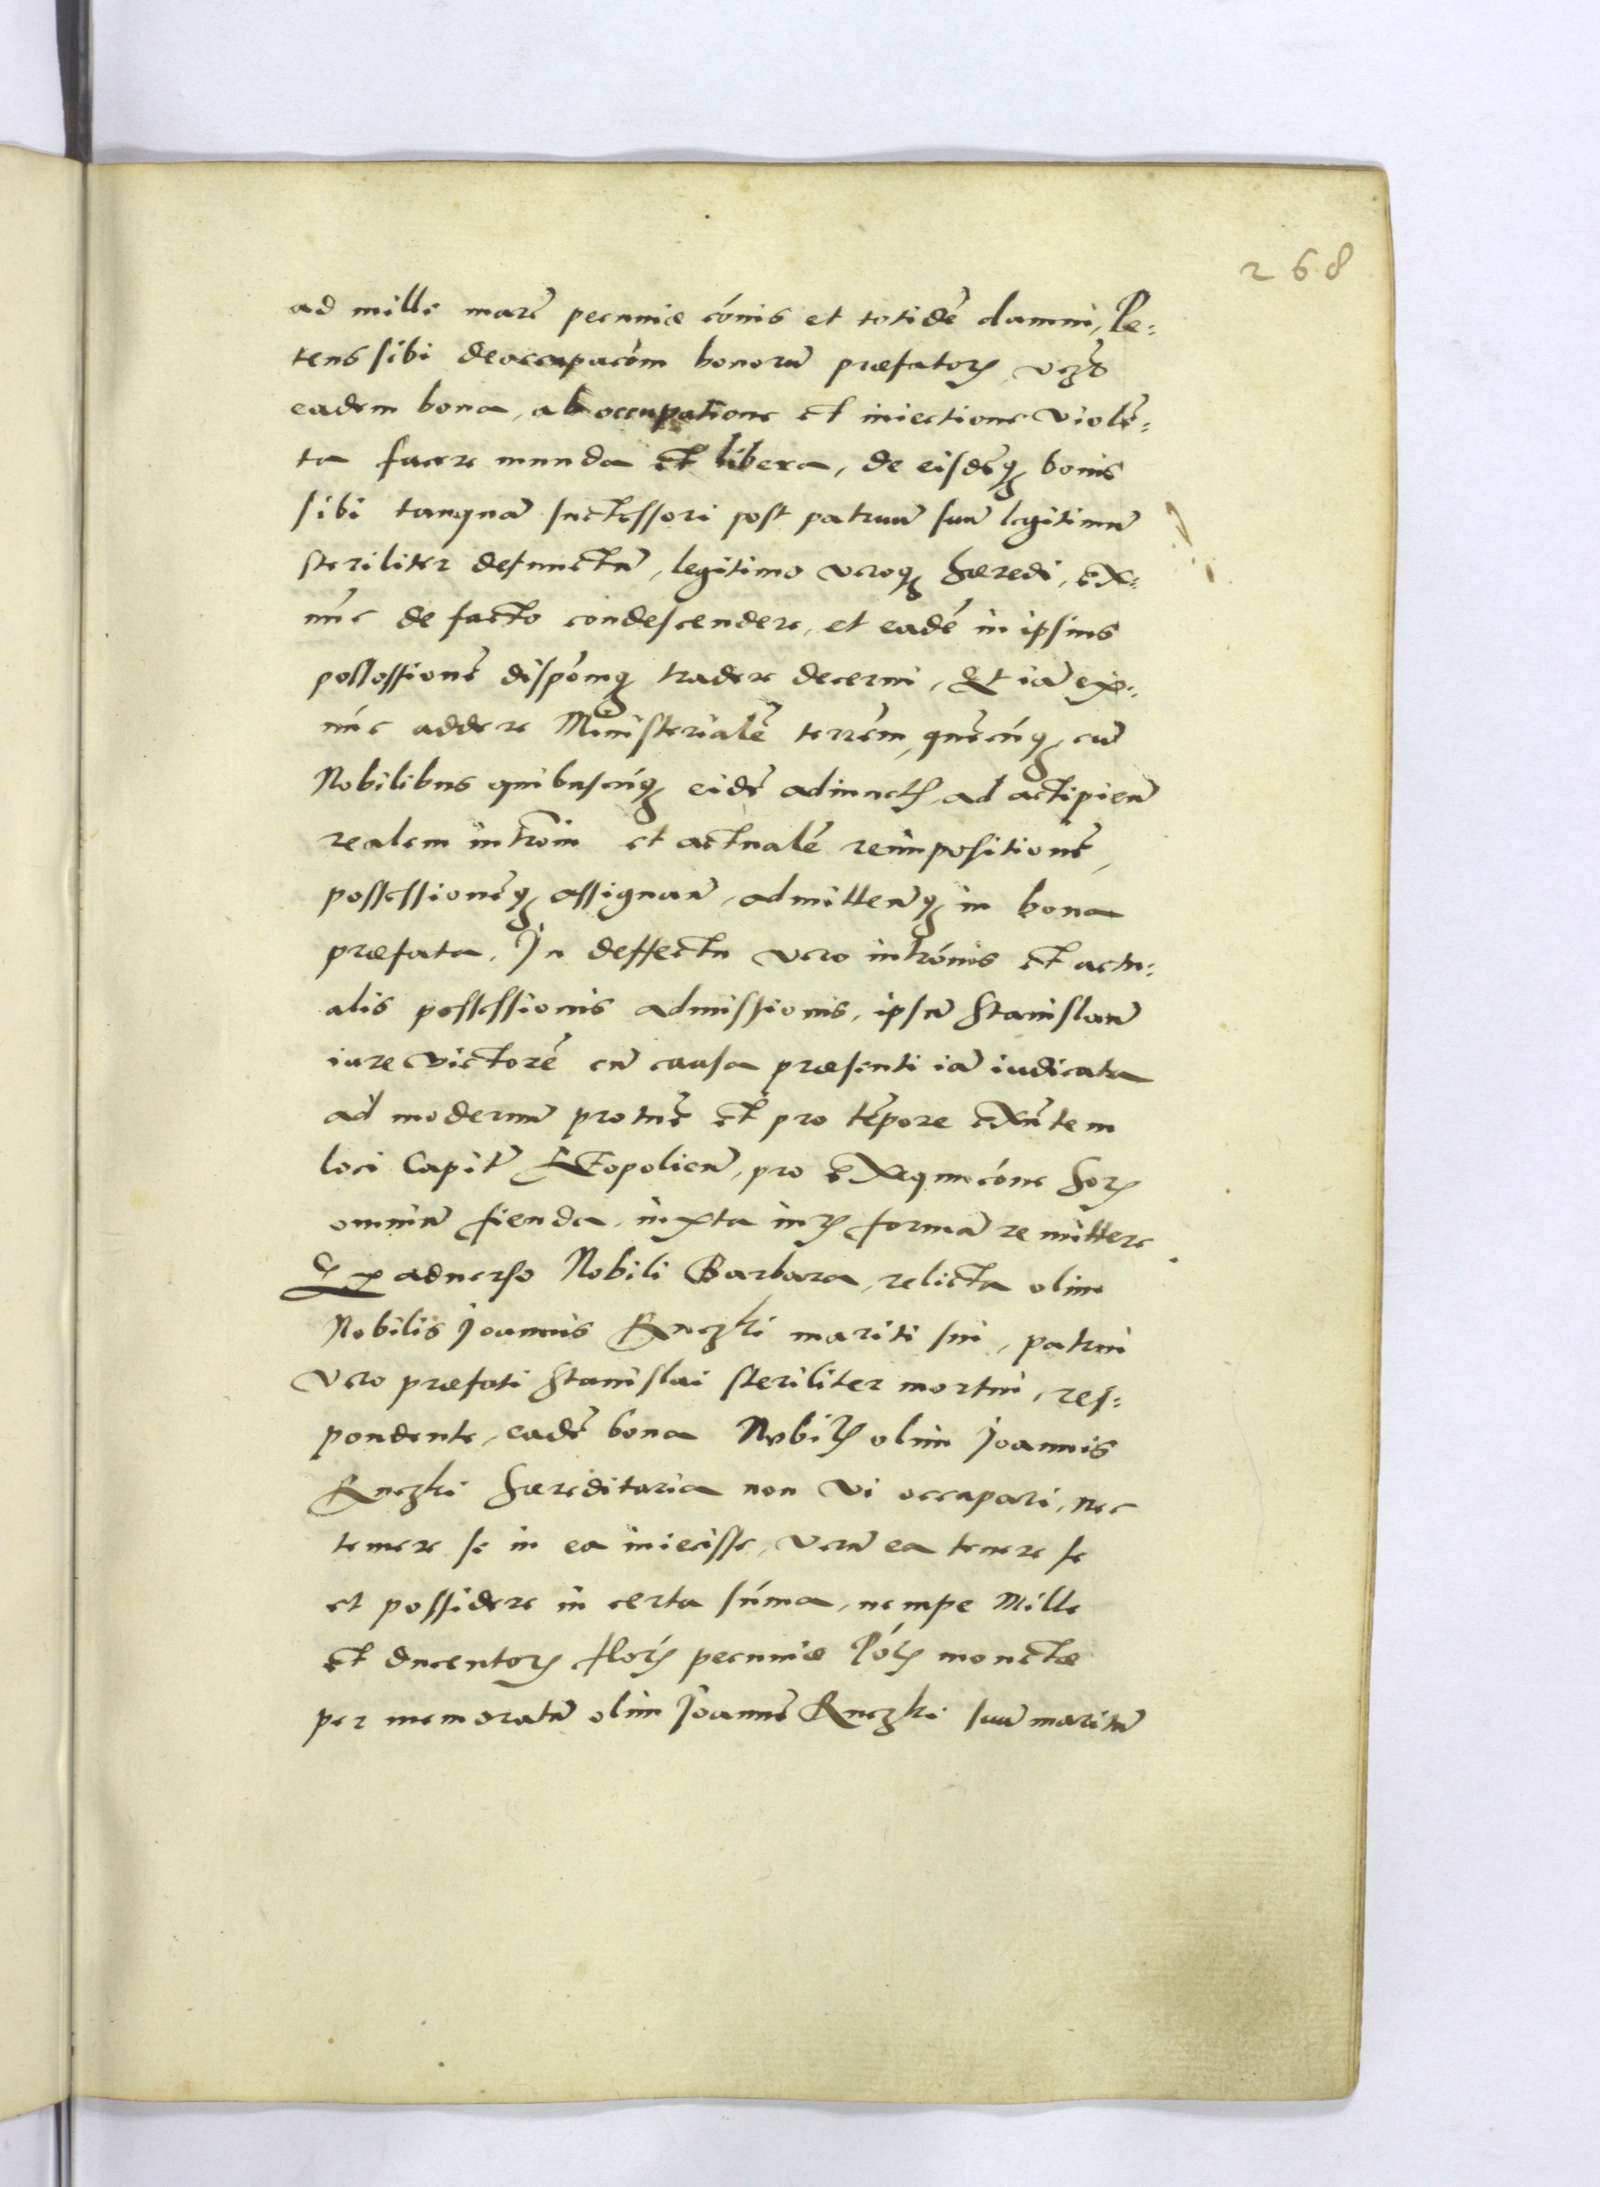 268
ad mille marc̃ pecuniæ cóm̃is et totidẽ damni, Pe:
tens sibi deoccupacõm bonorũ præfatoꝝ, vcꝫ
eadem bona, ab occupatione et iniectione violẽ:
ta facere munda et libera, de eisdẽqꝫ bonis
sibi tanquã successori post patruũ suũ legitimũ
steriliter defunctũ, legitimo veroqꝫ hæredi, ex:
nũc de facto condescendere, et eadẽ in ipsius
possessionẽ dispõmqꝫ tradere decerni, Et iã ex:
nũc addere Ministerialẽ terrẽm, quẽcũqꝫ, cũ
Nobilibus quibuscũqꝫ eidẽ adiunctꝭ, ad accipienã
realem intrõm et actualẽ reimpositionẽ,
possessionẽqꝫ assignanã, admittenãqꝫ in bona
præfata. In deffectu vero intrõnis et actu:
alis possessionis admissionis, ipsũ Stanislaũ
iure victorẽ cũ causa præsenti iã iudicata
ad modernũ protũc et pro tẽpore exñtem
loci Capitñ, pro exequucõne hoꝝ
omniũ fienda, iuxta iuꝝ formã remittere
Ex aduerso Nobili Barbara, relicta olim
Nobilis Joannis Ruczki mariti sui, patrui
vero præfati Stanislai steriliter mortui, res:
pondente, eadẽ bona Nobilꝭ olim Joannis
Ruczki hæreditaria non vi occupari, nec
temere se in ea iniecisse, verũ ea tenere se
et possidere in certa sũma, nempe Mille
et ducentoꝝ floꝝ pecuniæ Põlꝭ monetæ
per memoratũ olim Joannẽ Ruczki suũ maritũ